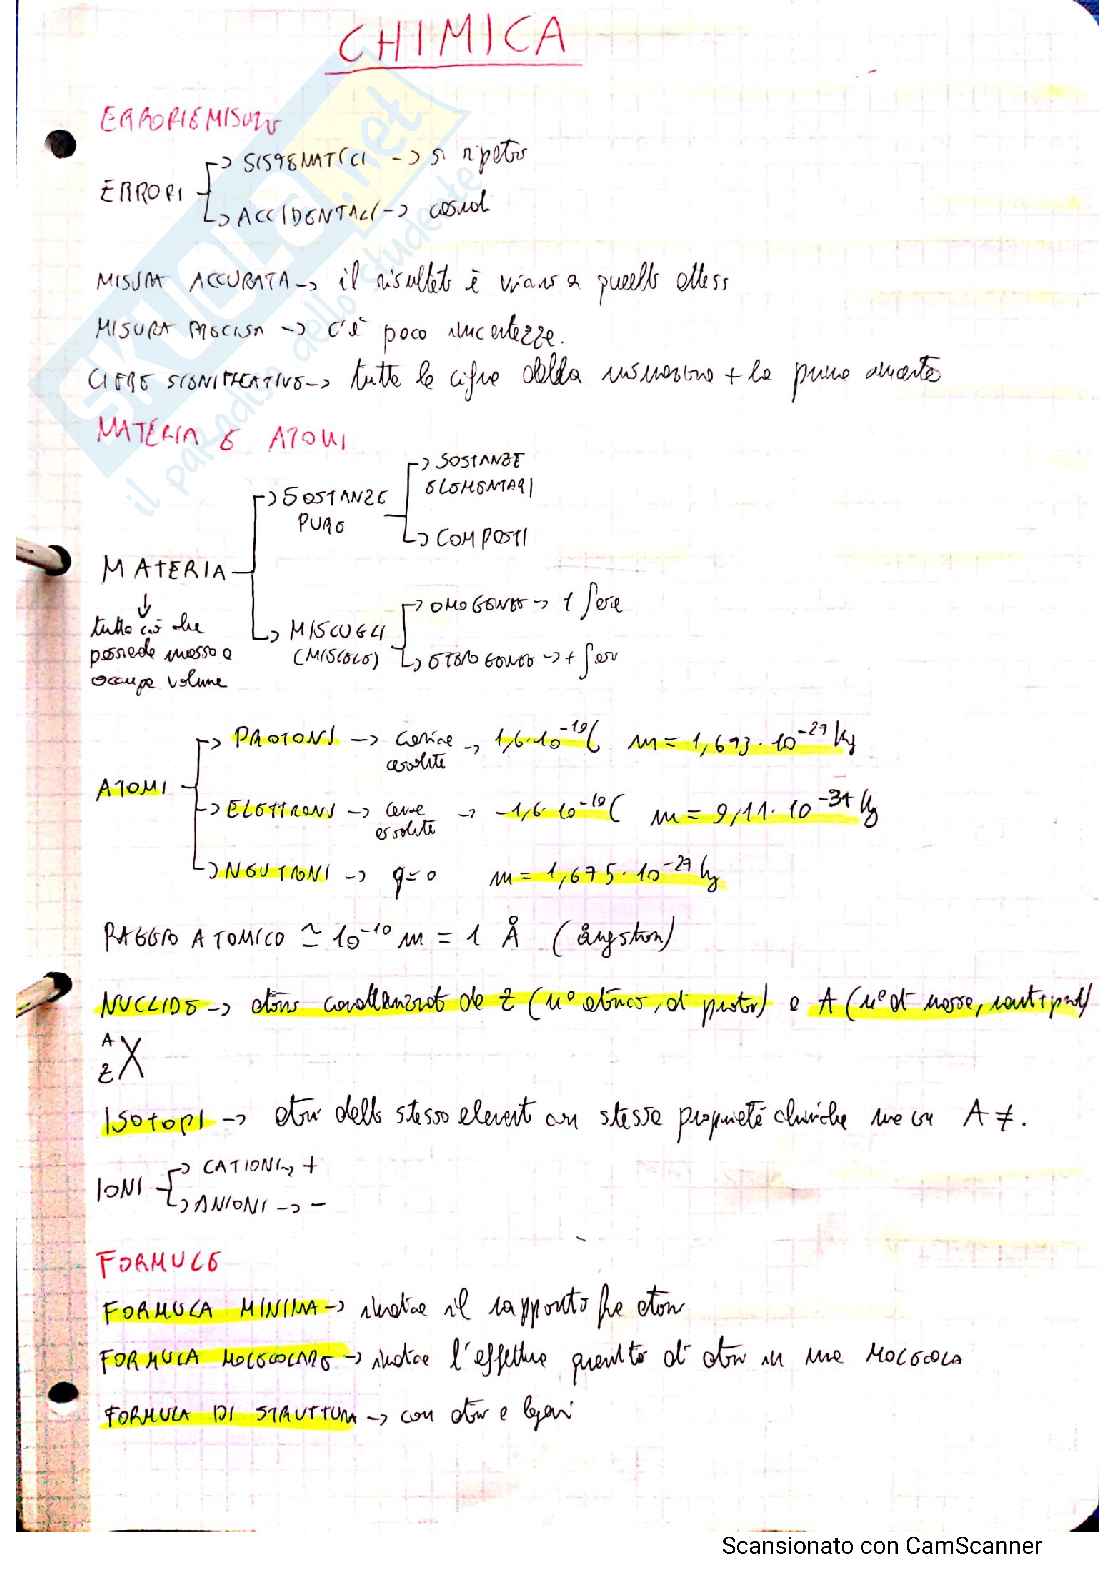 CHIMICA
ERRORI E MISURE
ERRORI → SISTEMATICI → si ripetono
→ ACCIDENTALI → casuali
MISURA ACCURATA → il risultato è vicino a quello atteso
MISURA PRECISA → c'è poca incertezza.
CIFRE SIGNIFICATIVE → tutte le cifre della misurazione + la prima incerta
MATERIA E ATOMI
MATERIA → SOSTANZE PURE → SOSTANZE ELEMENTARI
→ COMPOSTI
↓ tutto ciò che possiede massa e occupa volume
→ MISCUGLI (MISCELE) → OMOGENEO → 1 fase
→ ETEROGENEO → + fasi
ATOMI → PROTONI → carica assoluta → 1,6·10⁻¹⁹C m = 1,673·10⁻²⁷ kg
→ ELETTRONI → carica assoluta → -1,6·10⁻¹⁹C m = 9,11·10⁻³¹ kg
→ NEUTRONI → q=0 m = 1,675·10⁻²⁷ kg
RAGGIO ATOMICO ≃ 10⁻¹⁰ m = 1 Å (ångstrom)
NUCLIDE → atomo caratterizzato da Z (n° atomico, di protoni) e A (n° di massa, neut+prot)
A
Z X
ISOTOPI → atomi dello stesso elemento con stesse proprietà chimiche ma con A ≠.
IONI → CATIONI → +
→ ANIONI → -
FORMULE
FORMULA MINIMA → indica il rapporto fra atomi
FORMULA MOLECOLARE → indica l'effettiva quantità di atomi in una MOLECOLA
FORMULA DI STRUTTURA → con atomi e legami
SKUOLA.net
il paradiso dello studente
Scansionato con CamScanner